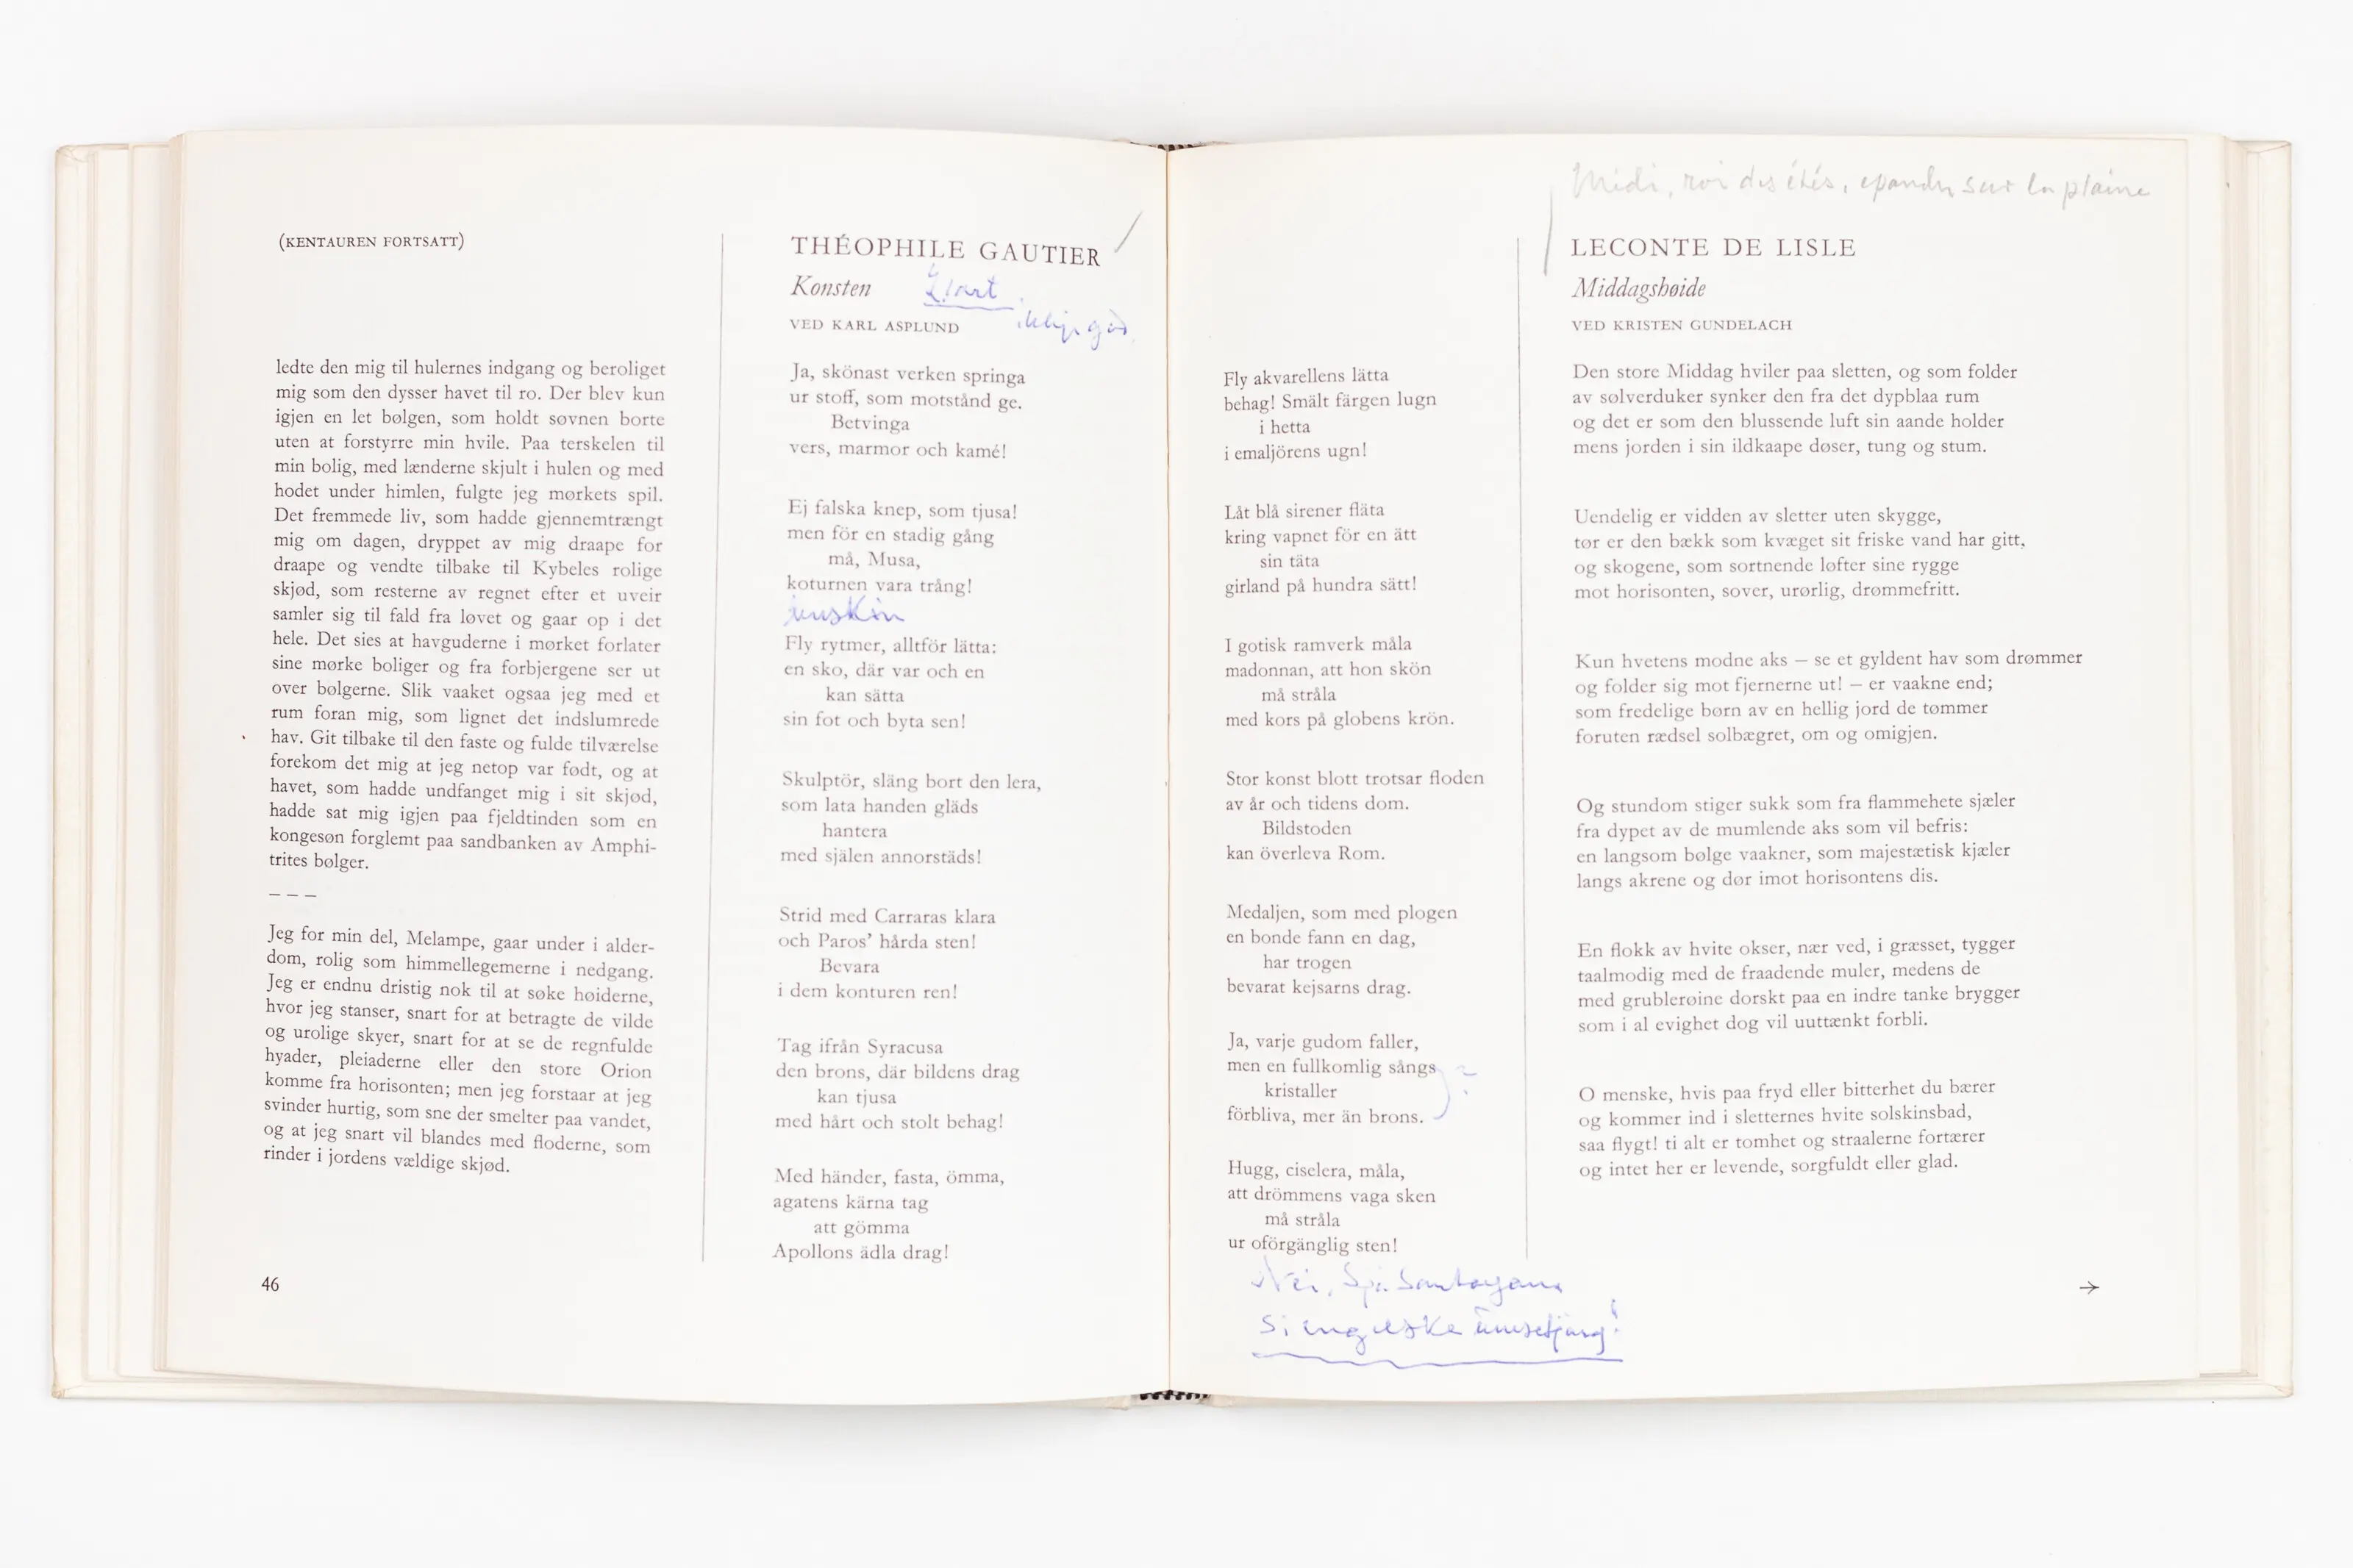 (KENTAUREN FORTSATT)
ledte den mig til hulernes indgang og beroliget
mig som den dysser havet til ro. Der blev kun
igjen en let bølgen, som holdt søvnen borte
uten at forstyrre min hvile. Paa terskelen til
min bolig, med lænderne skjult i hulen og med
hodet under himlen, fulgte jeg mørkets spil.
Det fremmede liv, som hadde gjennemtrængt
mig om dagen, dryppet av mig draape for
draape og vendte tilbake til Kybeles rolige
skjød, som resterne av regnet efter et uveir
samler sig til fald fra løvet og gaar op i det
hele. Det sies at havguderne i mørket forlater
sine mørke boliger og fra forbjergene ser ut
over bølgerne. Slik vaaket ogsaa jeg med et
rum foran mig, som lignet det indslumrede
hav. Git tilbake til den faste og fulde tilværelse
forekom det mig at jeg netop var født, og at
havet, som hadde undfanget mig i sit skjød,
hadde sat mig igjen paa fjeldtinden som en
kongesøn forglemt paa sandbanken av Amphi-
trites bølger.
– – –
Jeg for min del, Melampe, gaar under i alder-
dom, rolig som himmellegemerne i nedgang.
Jeg er endnu dristig nok til at søke høiderne,
hvor jeg stanser, snart for at betragte de vilde
og urolige skyer, snart for at se de regnfulde
hyader, pleiaderne eller den store Orion
komme fra horisonten; men jeg forstaar at jeg
svinder hurtig, som sne der smelter paa vandet,
og at jeg snart vil blandes med floderne, som
rinder i jordens vældige skjød.
46
THÉOPHILE GAUTIER
Konsten L'Art
VED KARL ASPLUND
Ja, skönast verken springa
ur stoff, som motstånd ge.
Betvinga
vers, marmor och kamé!
Ej falska knep, som tjusa!
men för en stadig gång
må, Musa,
koturnen vara trång!
Fly rytmer, alltför lätta:
en sko, där var och en
kan sätta
sin fot och byta sen!
Skulptör, släng bort den lera,
som lata handen gläds
hantera
med själen annorstäds!
Strid med Carraras klara
och Paros' hårda sten!
Bevara
i dem konturen ren!
Tag ifrån Syracusa
den brons, där bildens drag
kan tjusa
med hårt och stolt behag!
Med händer, fasta, ömma,
agatens kärna tag
att gömma
Apollons ädla drag!
Fly akvarellens lätta
behag! Smält färgen lugn
i hetta
i emaljörens ugn!
Låt blå sirener fläta
kring vapnet för en ätt
sin täta
girland på hundra sätt!
I gotisk ramverk måla
madonnan, att hon skön
må stråla
med kors på globens krön.
Stor konst blott trotsar floden
av år och tidens dom.
Bildstoden
kan överleva Rom.
Medaljen, som med plogen
en bonde fann en dag,
har trogen
bevarat kejsarns drag.
Ja, varje gudom faller,
men en fullkomlig sångs
kristaller
förbliva, mer än brons.
?
Hugg, ciselera, måla,
att drömmens vaga sken
må stråla
ur oförgänglig sten!
Nei, Santayana
si engelske umsetjing!
Midi, roi des étés, epandu sur la plaine
LECONTE DE LISLE
Middagshøide
VED KRISTEN GUNDELACH
Den store Middag hviler paa sletten, og som folder
av sølverduker synker den fra det dypblaa rum
og det er som den blussende luft sin aande holder
mens jorden i sin ildkaape døser, tung og stum.
Uendelig er vidden av sletter uten skygge,
tør er den bækk som kvæget sit friske vand har gitt,
og skogene, som sortnende løfter sine rygge
mot horisonten, sover, urørlig, drømmefritt.
Kun hvetens modne aks – se et gyldent hav som drømmer
og folder sig mot fjernerne ut! – er vaakne end;
som fredelige børn av en hellig jord de tømmer
foruten rædsel solbægret, om og omigjen.
Og stundom stiger sukk som fra flammehete sjæler
fra dypet av de mumlende aks som vil befris:
en langsom bølge vaakner, som majestætisk kjæler
langs akrene og dør imot horisontens dis.
En flokk av hvite okser, nær ved, i græsset, tygger
taalmodig med de fraadende muler, medens de
med grublerøine dorskt paa en indre tanke brygger
som i al evighet dog vil uuttænkt forbli.
O menske, hvis paa fryd eller bitterhet du bærer
og kommer ind i sletternes hvite solskinsbad,
saa flygt! ti alt er tomhet og straalerne fortærer
og intet her er levende, sorgfuldt eller glad.
→